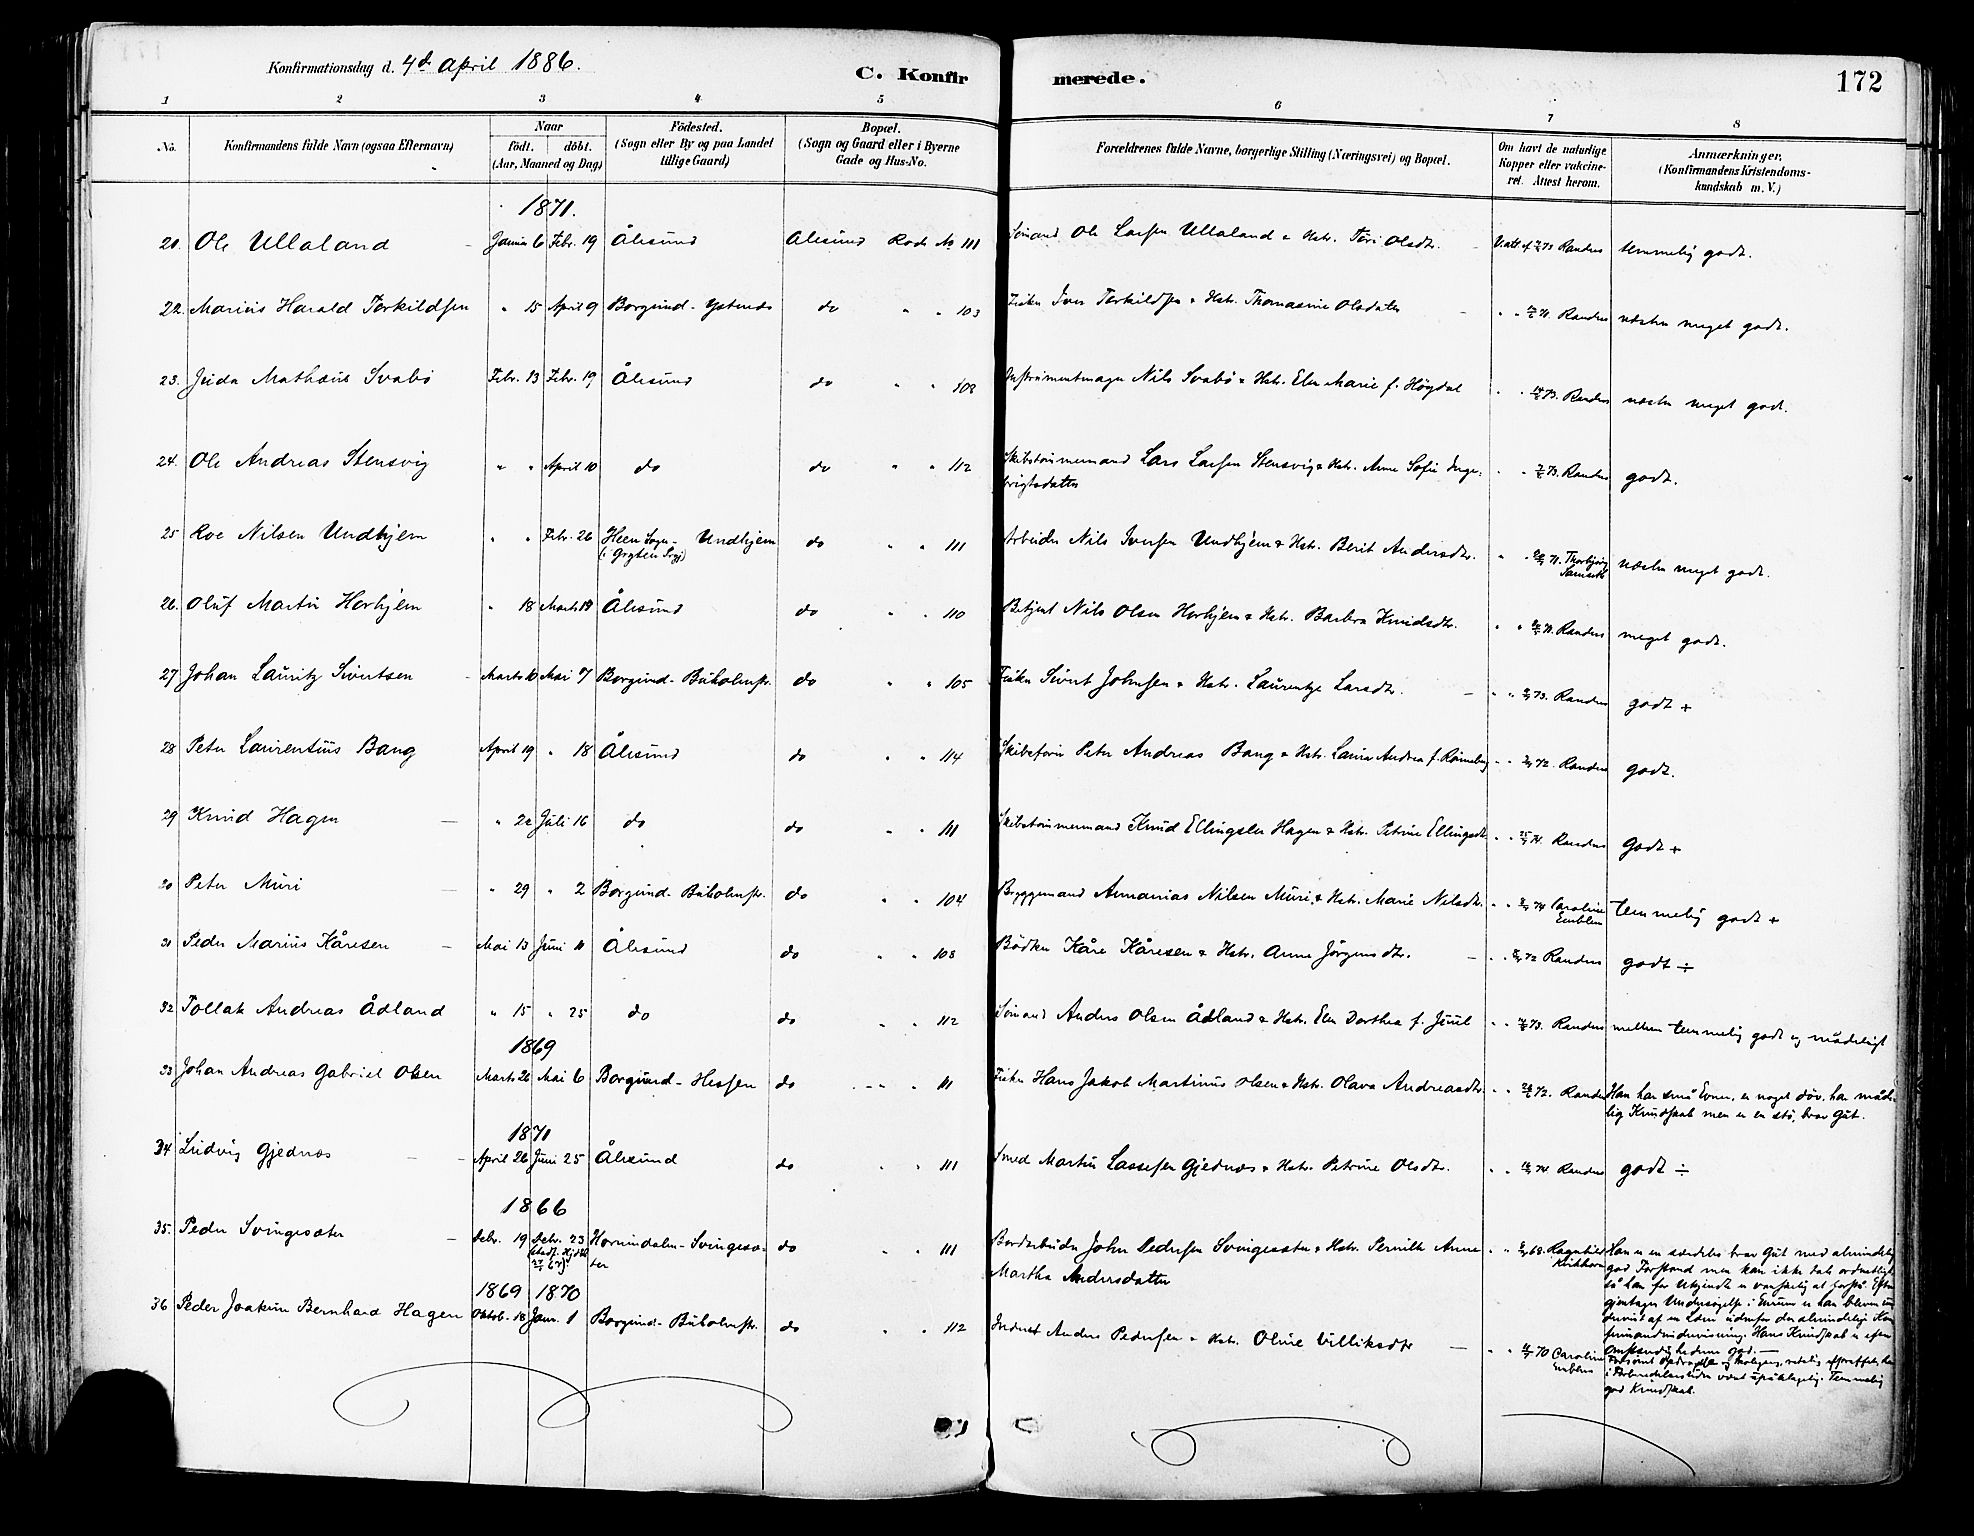 Konfirmationsdag d. 4d April 1886.
C. Konfirmerede.
172
1 2 3 4 5 6 7 8
No. Konfirmandens fulde Navn (ogsaa Efternavn) Naar født. døbt. (Aar, Maaned og Dag) Fødested. (Sogn eller By og paa Landet tillige Gaard) Bopæl. (Sogn og Gaard eller i Byerne Gade og Hus-No. Forældrenes fulde Navne, borgerlige Stilling (Næringsvei) og Bopæl. Om havt de naturlige Kopper eller vakcineret. Attest herom. Anmærkninger. (Konfirmandens Kristendomskundskab m. V.)
1871.
21. Ole Ullaland Januar 6 Febr. 19 Ålesund Alesund Rode No 111 Sømand Ole Larsen Ullaland & Hstr. Töri Olsdtr. V. att. af 73 Randers temmelig godt.
22. Marius Harald Terkildsen " 15 April 9 Borgund - Ystenæs do " " 103 Fisker Iver Terkildsen & Hstr. Thomasine Olsdatter " " 71. Randers næsten meget godt.
23. Juda Mathæus Svabö Febr. 13 Febr. 19 Ålesund do " " 102 Instrumentmager Nils Svabö & Hstr. Elen Marie f. Høgdal " " 73. Randers næsten meget godt.
24. Ole Andreas Stensvig " " April 10 do do " " 112 Skibstømmermand Lars Larsen Stensvig & Hstr. Anne Sofie Inge-
brigtsdatter " " 73. Randers godt.
25 Roe Nilsen Undhjem " " Febr. 26 Heen Sogn - Undhjem do " " 111 Arbeider Nils Iversen Undhjem & Hstr. Berit Andersdtr. " " 71. Thorbjörg næsten meget godt.
(i Grytten Prgj)
26. Oluf Martin Horhjem " 18 Marts 19 Ålesund do " " 110 Betjent Nils Olsen Horhjem & Hstr. Barbra Knudsdtr. " " 71. Randers meget godt.
27 Johan Lauritz Sivertsen Marts 10 Mai 7 Borgund - Buholmstr. do " " 105 Fisker Sivert Johnsen & Hstr. Laurentze Larsdtr. " " 73. Randers godt +
28 Peter Laurentius Bang April 19 " 18 Ålesund do " " 114 Skibsfører Peter Andreas Bang & Hstr. Laura Andrea f. Rönneberg " " 72. Randers godt.
29 Knud Hagen " 22 Juli 16 do do " " 111 Skibstømmermand Knud Ellingsen Hagen & Hstr. Petrine Ellingsdtr. " " 74. Randers godt +
30 Peter Muri " 29 " 2 Borgund - Buholmstr. do " " 104 Bryggemand Annanias Nilsen Muri & Hstr. Marie Nilsdtr. " " 74 Caroline Emblem temmelig godt +
31 Peder Marius Kåresen Mai 13 Juni 11 Ålesund do " " 103 Bödker Kåre Kåresen & Hstr. Anne Jörgensdtr. " " 72 Randers godt ÷
32 Tollak Andreas Ådland " 15 " 25 do do " " 112 Sømand Anders Olsen Ådland & Hstr. Elen Dorthea f. Juul " " 73. Randers mellem temmelig godt og mådeligt
1869
33 Johan Andreas Gabriel Olsen Marts 26 Mai 6 Borgund - Hessen do " " 111 Fisker Hans Jakob Martinus Olsen & Hstr. Olava Andreasdtr. " " 72. Randers Han har små Evner, er noget döv, har måde-
lig Kundskab men er en stø, brav Gut.
1871
34 Ludvig Gjednæs April 26 Juni 25 Ålesund do " " 111 Smed Martin Lassesen Gjednæs & Hstr. Petrine Olsdtr. " " 74. Randers godt ÷
1866
35. Peder Svingesæter Debr. 19 Debr. 23 Hornindalen - Svingesæ-
ter do " " 111 Bordarbeider John Pedersen Svingesæter & Hstr. Pernille Anne
Martha Andersdatter " " 68. Ragnhild Kirkhorn Han er en særdeles brav Gut med almindelig
god Forstand men kan ikke tale ordentligt
så han for Ukjendte er vanskelig at forstå. Efter
gjentagen Undersøgelse i Enrum er han bleven un-
dervist af en Lærer udenfor den almindelige Kon-
firmandundervisning. Hans Kundskab er efter
Omstændighederne god.
1869 1870
36 Peder Joakim Bernhard Hagen Oktob. 18 Janr. 1 Borgund - Buholmstr. do " " 112 Inderst Anders Pedersen & Hstr. Oline Villiksdtr " " 70 Caroline Emblem
i Forberedelsestiden været upåklagelig. Temmelig
god Kundskab.